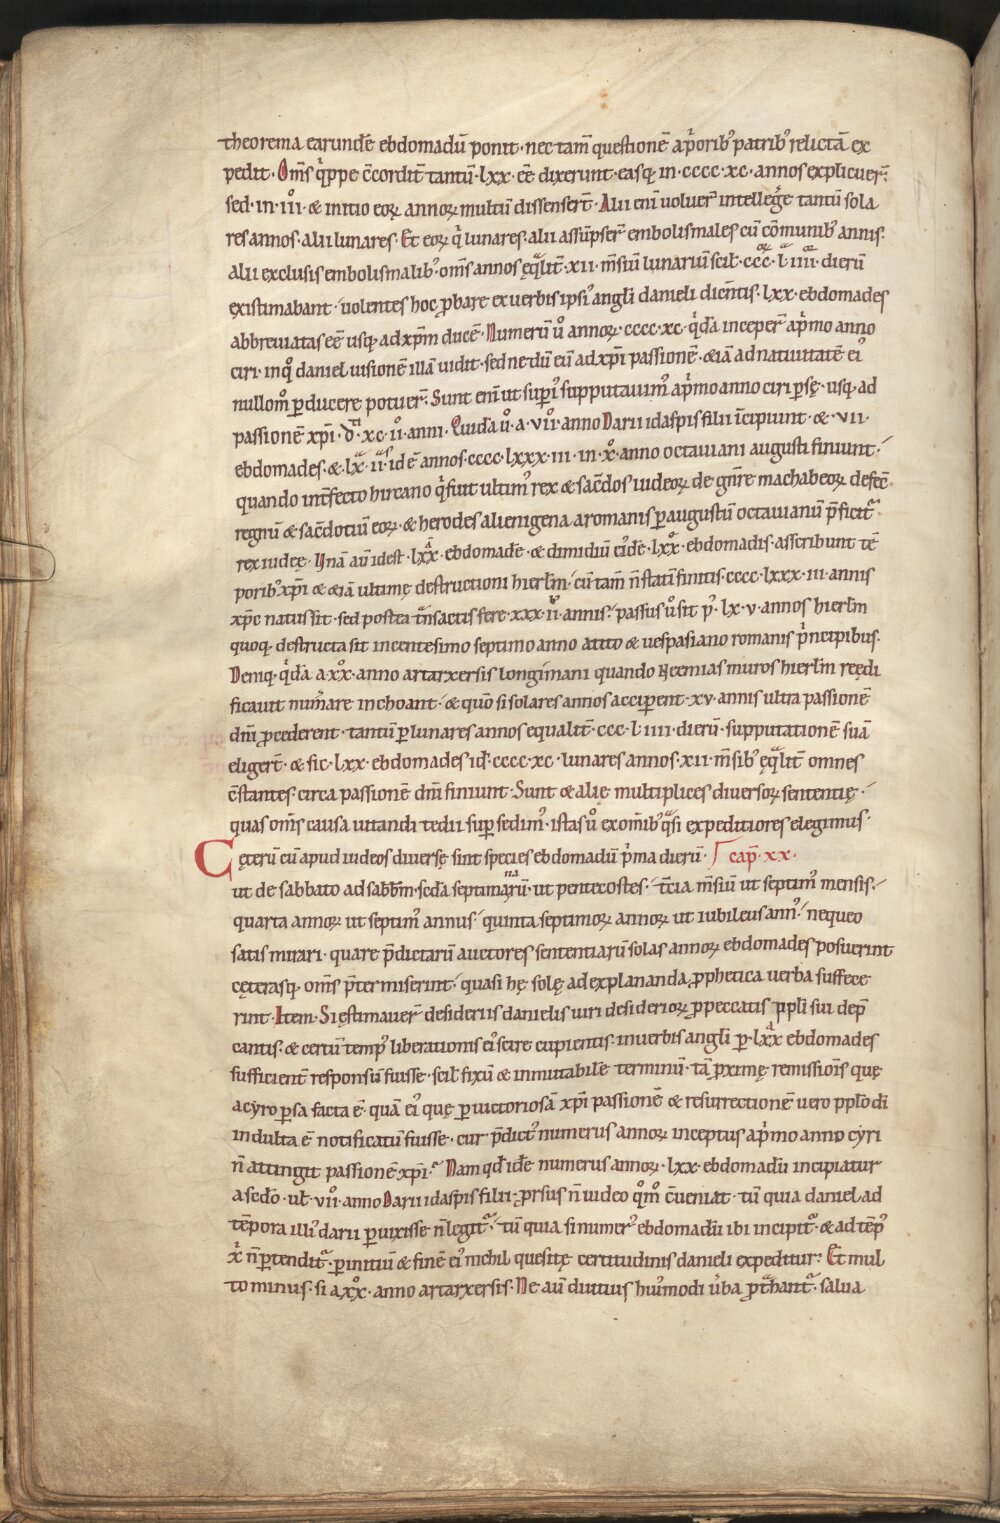 theorema earundē ebdomadū ponit· nec tam̄ questionē a p̍orib; patrib; relictā ex
pedit· Om̄s q̍ppe c̄cordit̄ tantū·lxx·eē dixerunt· easq; in·cccc·xc·annos explicuer̄·
sed·in·iiiͦ·& initio eoꝝ annoꝝ multū dissenser̄t· Alii eni uoluer̄ intelleg̾e tantū sola
res annos· alii lunares· Et eoꝝ q̍ lunares· alii assūpser̄ embolismales cū cōmunib; annis·
alii exclusis embolismalib; om̄s annos ęq̄lit̄·xii·m̄siū lunariū scil̄·ccc·l·iiii·dierū
existimabant· uolentes hoc ꝓbare ex uerbis ipsi᾽ angl̄i danieli dicn̄tis·lxx·ebdomades
abbreuiatas eē usq; ad xp̄m ducē· Numerū u̾o annoꝝ·cccc·xc·q̍dā inceper̄ a p̍mo anno
ciri· in quͦ daniel uisionē illā uidit· sed nedū eū ad xp̄i passionē· & iā ad natiuitatē ei᾽
nullomͦ ꝑducere potuer̄· Sunt eni ut sup̍i᾽ supputauim᾽ a p̍mo anno ciri ꝑsę· usq; ad
passionē xp̄i·d·xc·iiͦ·anni· Quidā u̾o·a·viiͦ·anno Darii idaspis filii īcipiunt·&·vii·
ebdomades·&·lx·ii·idē annos·cccc·lxxx·iii·in·xͦ·anno octauiani augusti finiunt·
quando int̄fecto hircano q̍ fuit ultim᾽ rex & sac̄dos iudeoꝝ de gn̄re machabeoꝝ defec̄
regnū & sac̄dotiū eoꝝ·& herodes alienigena a romanis ꝑ augustū octauianū p̄ficit᷑
rex iudeę· Vnā aū idest·lxx·ebdomadē·& dimidiū ei᾽dē·lxx·ebdomadis· asscribunt tē
porib; xp̄i & & iā ultimę destructioni hierl̄m· cū tam̄ n̄ statī finitis·cccc·lxxx·iii·annis
xp̄c natus sit· sed postea t̄nsactis fere·xxx·ii·annis· passus u̾o sit p᾽·lx·v·annos hierl̄m
quoq; destructa sit in centesimo septimo anno a tito & uespasiano romanis p̍ncipibus·
Deniq; q̍dā a·xxͦ·anno artarxersis longimani quando Neemias muros hierl̄m reędi
ficauit num̾are inchoant· & quō si solares annos acciꝑent·xv·annis ultra passionē
dn̄i ꝓcederent· tantū ꝑ lunares annos equalit̄·ccc·l·iiii·dierū·supputationē suā
eliger̄t·& sic·lxx·ebdomades id̄·cccc·xc·lunares annos·xii·m̄sib; ęq̄lit̄ omnes
c̄stantes· circa passionē dn̄i finiunt· Sunt & alię multiplices diuersoꝝ sententię·
quas om̄s causa uitandi tedii suꝑsedim᾽· istas u̾o ex om̄ib; q̄si expeditiores elegimus·
Cęterū cū apud iudeos diuersę sint species ebdomadū p̍ma dierū· cap̄·xx·
ut de sabbato ad sab̄b̄m· sc̄da septimanarū· ut pentecostes· t̄cia m̄siū ut septim᾽ mensis·
quarta annoꝝ ut septim᾽ annus· quinta septimoꝝ annoꝝ ut iubileus ann᾽· nequeo
satis mirari· quare p̄dictarū auctores sententiarū solas annoꝝ ebdomades posuerint
cęterasq; om̄s p̄termiserint· quasi hę solę ad explananda ꝓphetica uerba suffece
rint· Item· Si ęstimauer̄ desideriis danielis uiri desiderioꝝ ꝓ peccatis ppl̄i sui dep̄
cantis·& certū temp᾽ liberationis ei᾽ scire cupientis· in uerbis angl̄i ꝑ·lxx ebdomades
sufficient̄ responsū fuisse· scil̄ fixū & inmutabilē terminū· tā ꝓximę remissiōis quę
a cyro ꝑsa facta ē· quā ei᾽ quę ꝑ uictoriosā xp̄i passionē & resurrectionē uero ppl̄o di
indulta ē notificatū fuisse· cur p̄dict᾽ numerus annoꝝ inceptus a p̍mo anno cyri
n̄ attingit passionē xp̄i· Nam qd̄ idē numerus annoꝝ·lxx·ebdomadū incipiatur
a sec̄do·ul̄·viiͦ·anno Darii idaspis filii· ꝓrsus n̄ uideo qͦmͦ c̄ueniat· tū quia daniel ad
tēpora illi᾽ darii ꝑuixisse n̄ legit᷑· tū quia si numer᾽ ebdomadū ibi incipit᷑·& ad tēp᾽
x̍ n̄ ꝑtendit᷑· ꝑ initiū & finē ei᾽ nichil quesitę certitudinis danieli expeditur· Et mul
to minus· si a xxͦ·anno artarxersis· Ne aū diutius hui᾽modi u̾ba ꝓt̄hant᷑· salua